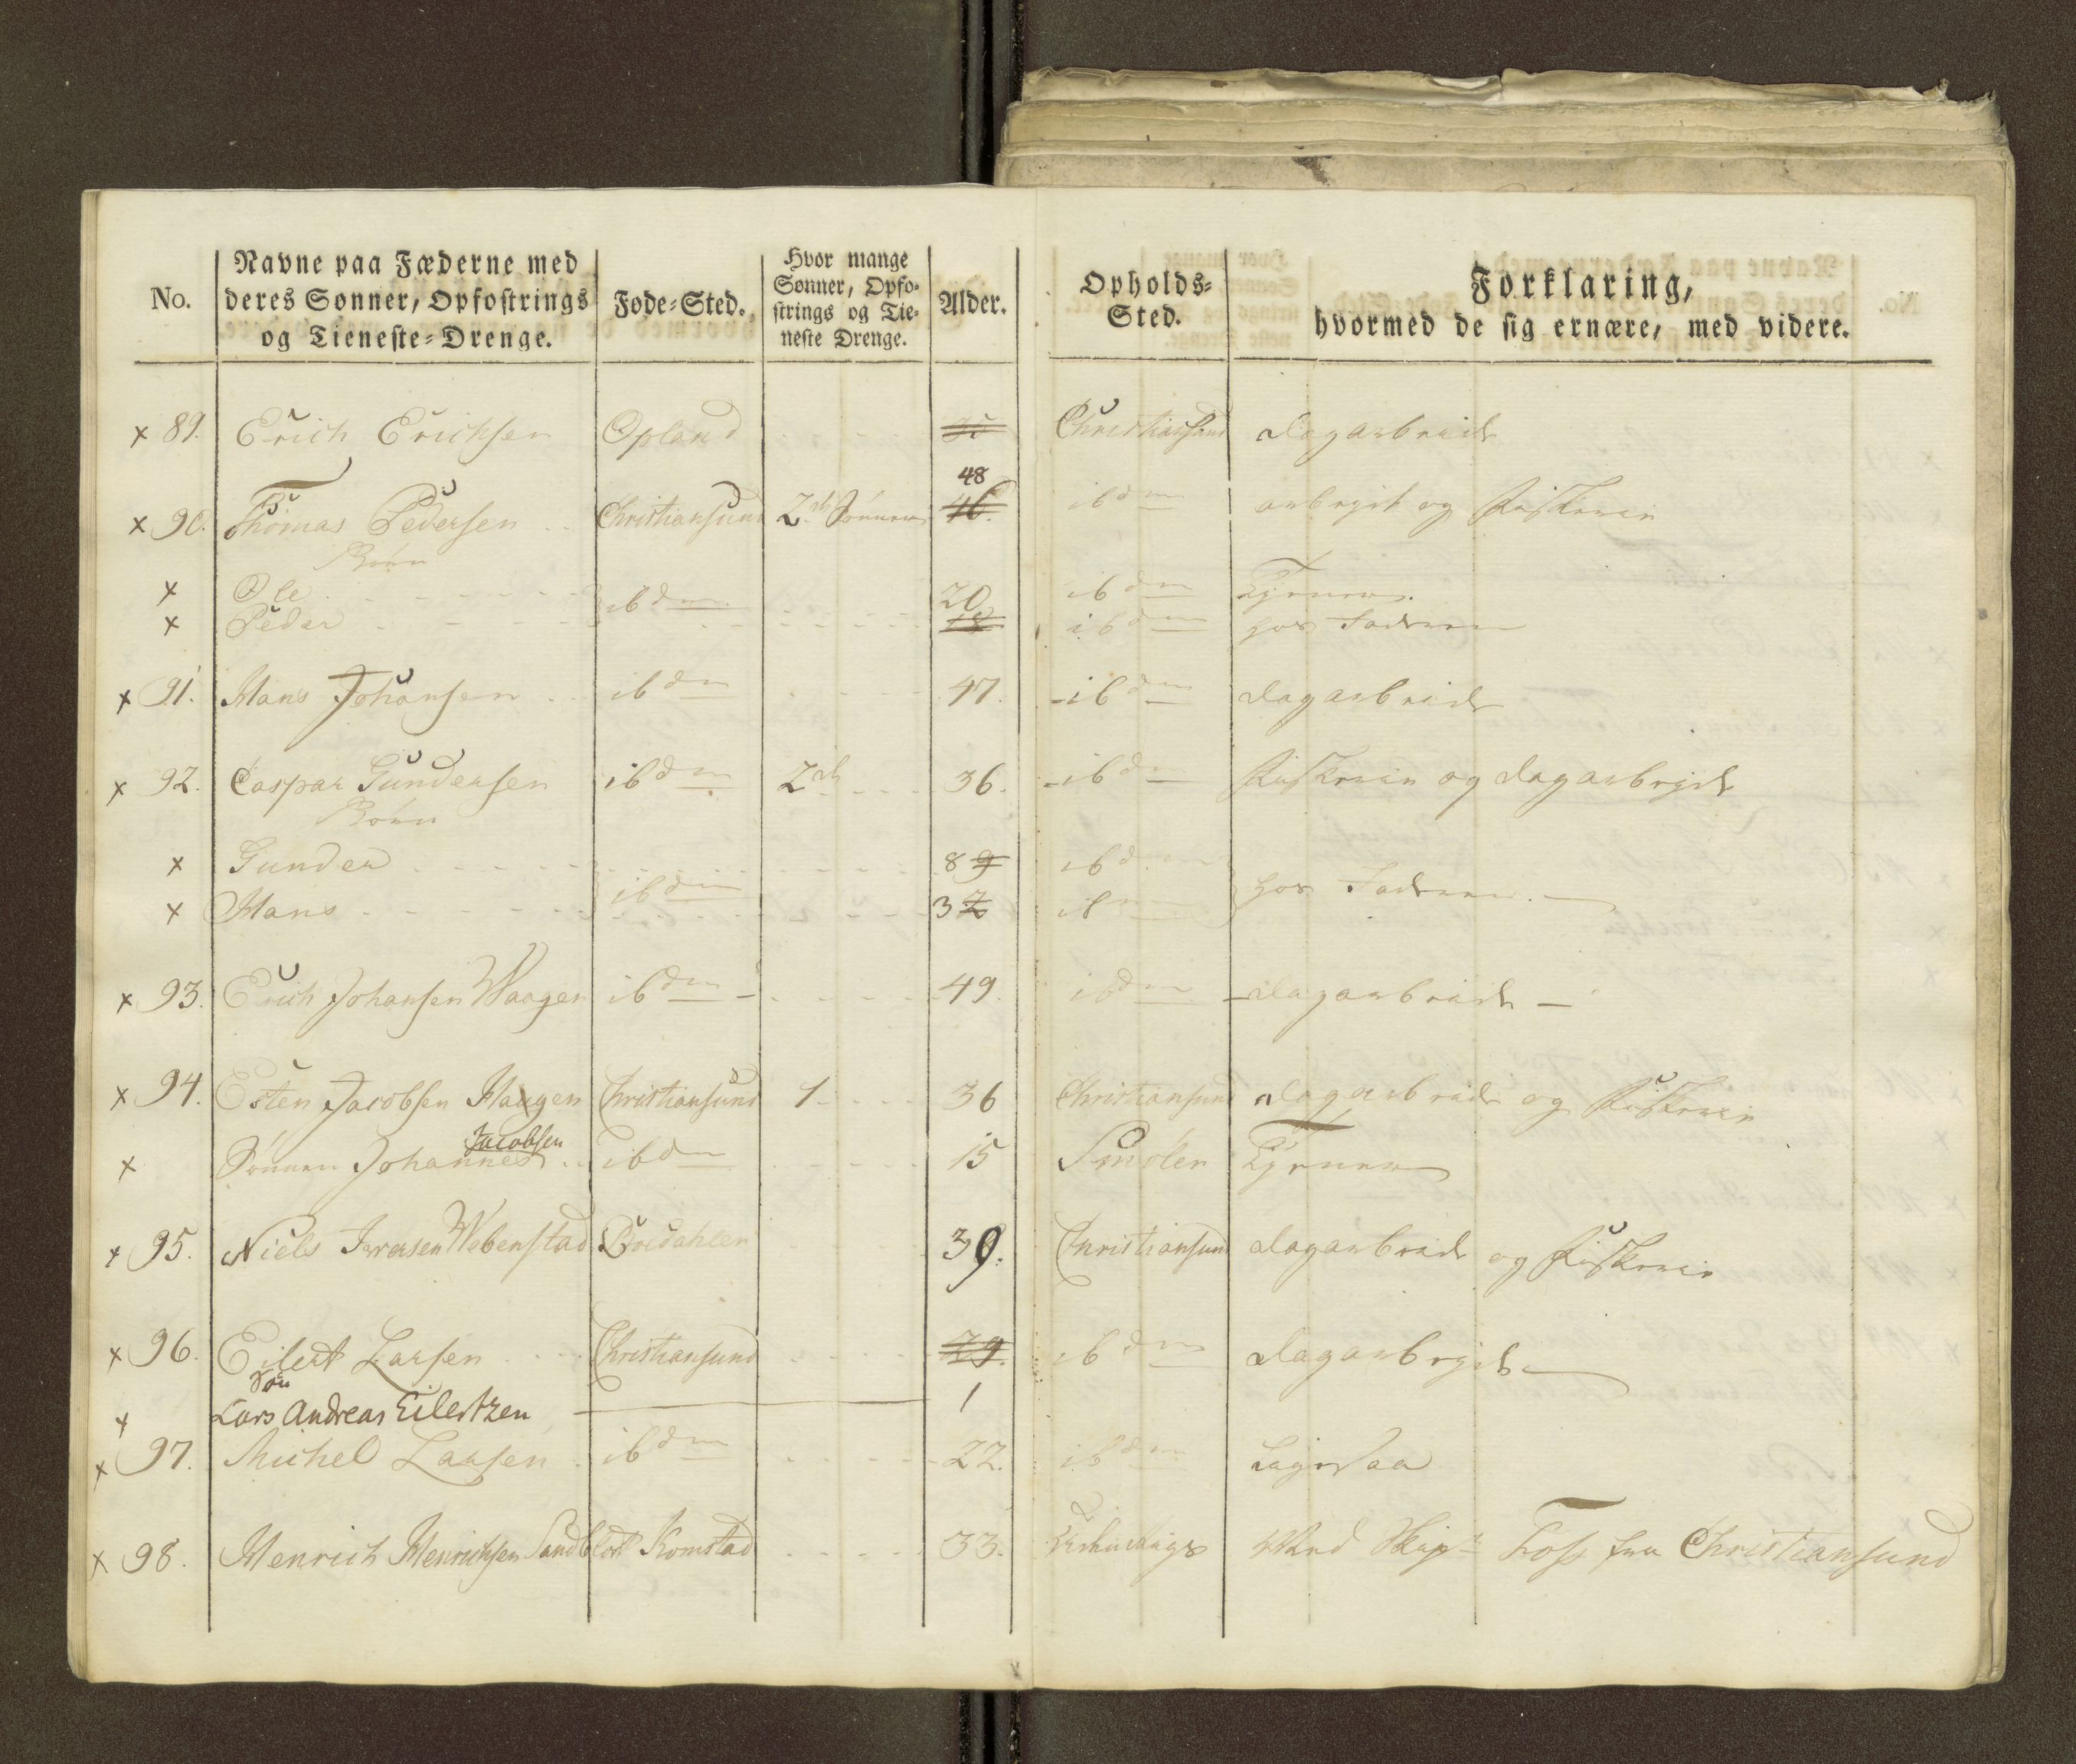 No. Navne paa Fæderne med deres Sønner, Opfostrings og Tieneste-Drenge. Føde-Sted. Hvor mange Sønner, Opfostrings og Tieneste Drenge. Alder. Opholds-Sted. Forklaring, hvormed de sig ernære, med videre.
x 89. Erich Erichsen Opland Christiansund dagarbeide
48
x 90. Thomas Pedersen Christiansund 2de Sønner 46. ibdm arbeyde og fiskerie
Børn
x Ole ibdm 20 ibdm Tjener.
x Peder 18 ibdm hos Faderen
x 91. Hans Johansen ibdm 47. ibdm dagarbeide
x 92. Caspar Gundersen ibdm 2de 36. ibdm fiskerie og dagarbeyde
Børn
x Gunder ibdm 8 9 ibdm hos Faderen
x Hans 3 2 ibdm
x 93. Erich Johansen Waagen ibdm 49. ibdm dagarbeide
x 94. Esten Jacobsen Haugen Christiansund 1 36 Christiansund dagarbeide og fiskerie
Jacobsen
x Sønnen Johannes ibdm 15 Smølen Tjener
x 95. Niels Iversen Webenstad 39. Christiansund dagarbeide og fiskerie
x 96. Eilert Larsen Christiansund 29. ibdm dagarbeyde
Søn
x Lars Andreas Eilertzen 1
x 97. Michel Larsen ibdm 22. ibdm
x 98. Henrich Henrichsen Sandblost Romstad 33. Udenrigs Med Skipr Foss fra Christiansund